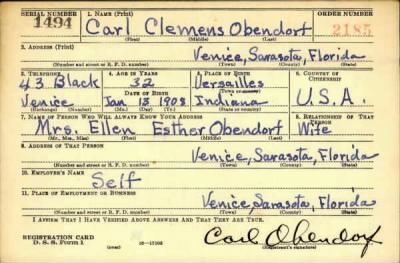 SERIAL NUMBER 1. NAME (Print) ORDER NUMBER
1494 Carl Clemens Obendorf 2185
(First) (Middle) (Last)
2. ADDRESS (Print)
Venice, Sarasota, Florida
(Number and street or R. F. D. number) (Town) (County) (State)
3. TELEPHONE 4. AGE IN YEARS 5. PLACE OF BIRTH 6. COUNTRY OF CITIZENSHIP
43 Black 32 Versailles
DATE OF BIRTH (Town or county)
Venice Jan 13 1908 Indiana U.S.A.
(Exchange) (Number) (Mo.) (Day) (Yr.) (State or country)
7. NAME OF PERSON WHO WILL ALWAYS KNOW YOUR ADDRESS 8. RELATIONSHIP OF THAT PERSON
Mrs. Ellen Esther Obendorf Wife
(Mr., Mrs., Miss) (First) (Middle) (Last)
9. ADDRESS OF THAT PERSON
Venice, Sarasota, Florida
(Number and street or R. F. D. number) (Town) (County) (State)
10. EMPLOYER'S NAME
Self
11. PLACE OF EMPLOYMENT OR BUSINESS
Venice, Sarasota, Florida
(Number and street or R. F. D. number) (Town) (County) (State)
I AFFIRM THAT I HAVE VERIFIED ABOVE ANSWERS AND THAT THEY ARE TRUE.
REGISTRATION CARD
D. S. S. Form 1 (over) Carl Obendorf
(Registrant's signature)